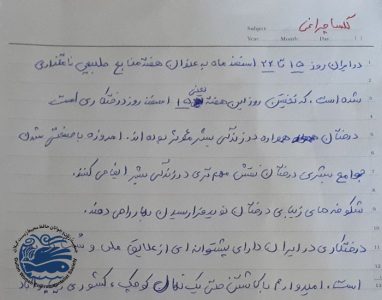 Subject:
گلسا چراغی
Year: Month: Day:
در ایران روز ۱۵ تا ۲۲ اسفند ماه به عنوان هفته منابع طبیعی نامگذاری
شده است. که نخستین روز این هفته یعنی ۱۵ اسفند روز درختکاری است
درختان همواره در زندگی بشر مؤثر بوده اند. امروزه با صنعتی شدن
جوامع بشری درختان نقش مهم تری در زندگی بشر ایفا می کنند.
شکوفه های زیبایی درختان نوید فرا رسیدن بهار را می دهند.
درختکاری در ایران دارای پشتوانه ای از علایق ملی و
است. امیدوارم با کاشتن حتی یک نهال کوچک، کشوری